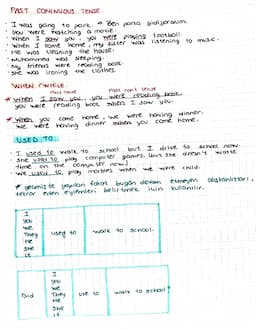 PAST CONTINUOUS TENSE
• I was going to park. * Ben parka gidiyordum.
• You were watching a movie.
• When I saw you, you were playing football.
• When I came home, my sister was listening to music.
• He was cleaning the house.
• Muhammed was sleeping.
• My friends were reading book.
• She was ironing the clothes.
WHEN / WHILE
Past cont. tense
* When I saw you, you were reading book.
you were reading book when I saw you.
* When you came home, we were having dinner.
We were having dinner when you came home.
USED TO
• I used to walk to school but I drive to school now.
• She used to play computer games (but she doesn't waste
time on the computer now)
• We used to play marbles when we were child.
* geçmişte yapılan fakat bugün devam etmeyen alışkanlıkları,
tekrar eden eylemleri belirtmek için kullanılır.
I
you
we
They
He
She
it
used to
walk to school.
Did
I
you
we
They
He
She
it
use to
walk to school?